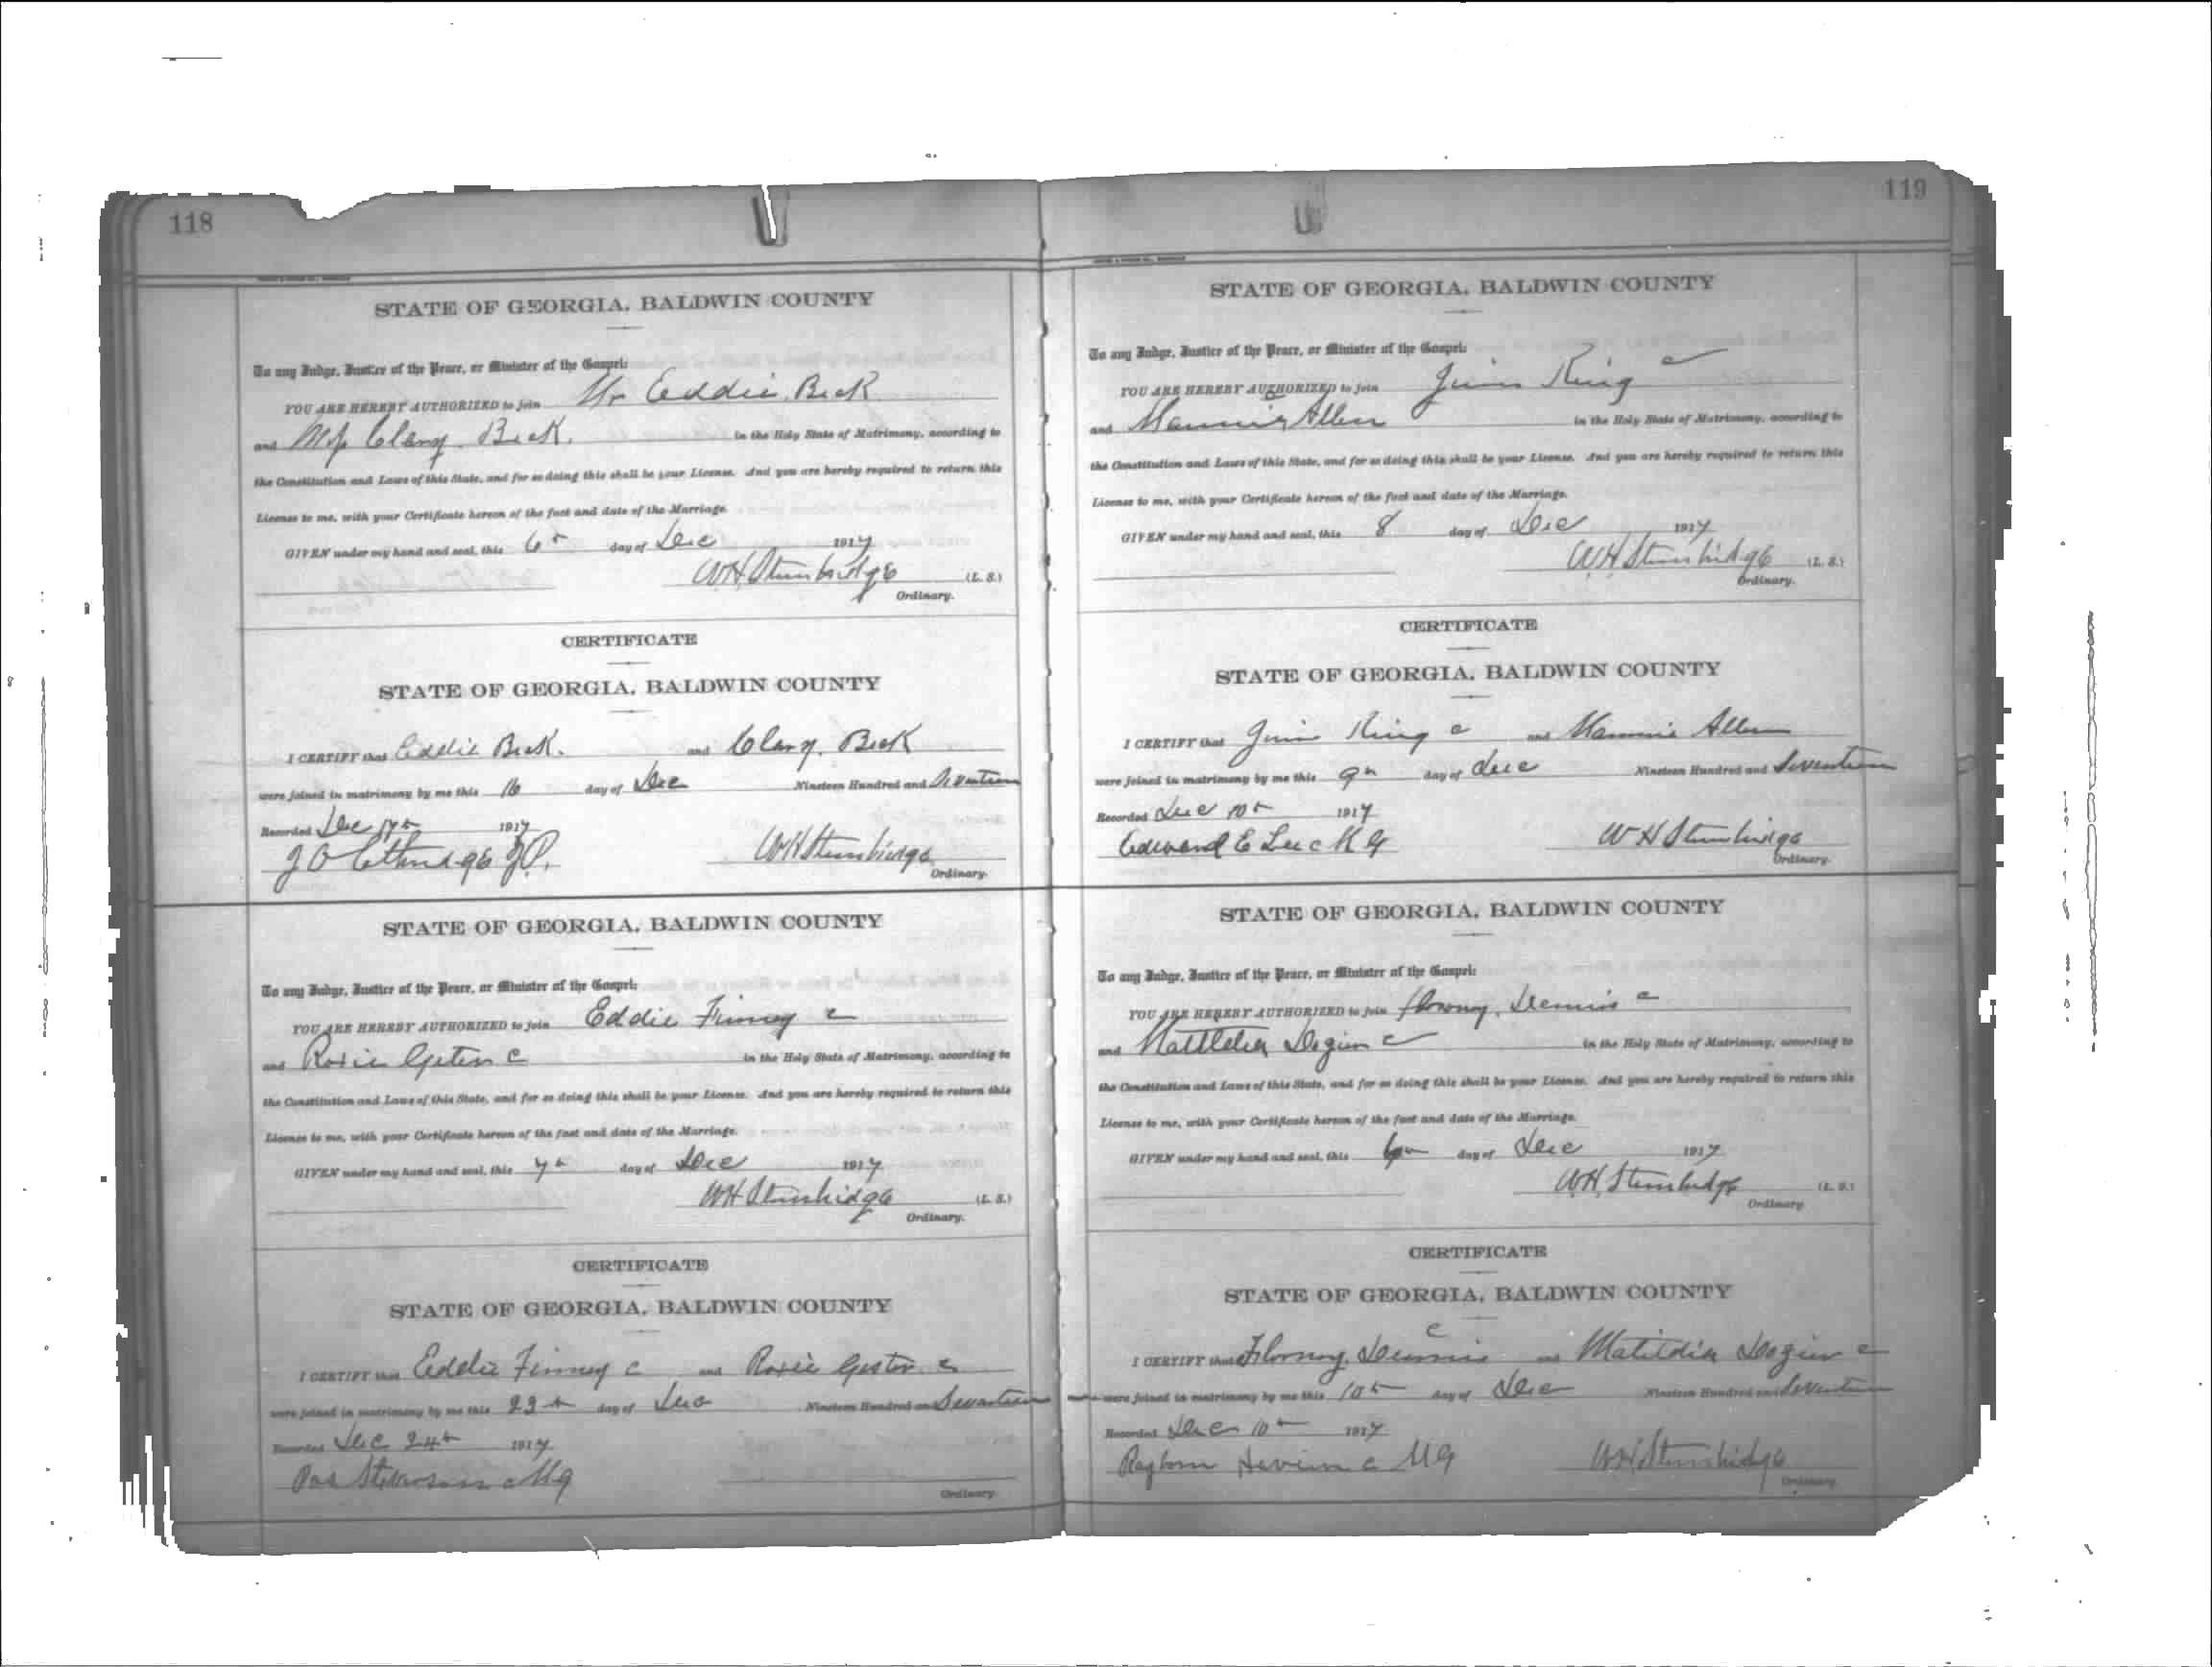 118
STATE OF GEORGIA, BALDWIN COUNTY
To any Judge, Justice of the Peace, or Minister of the Gospel:
YOU ARE HEREBY AUTHORIZED to join Mr Eddie Beck
and Beck. in the Holy State of Matrimony, according to
the Constitution and Laws of this State, and for so doing this shall be your License. And you are hereby required to return this
License to me, with your Certificate hereon of the fact and date of the Marriage.
GIVEN under my hand and seal, this 6th day of Dec 1917
W H Stembridge (L. S.)
Ordinary.
CERTIFICATE
STATE OF GEORGIA, BALDWIN COUNTY
I CERTIFY that Eddie Beck. and Beck
were joined in matrimony by me this 16 day of Dec Nineteen Hundred and Seventeen
Recorded Dec 17th 1917
J O Ethridge J.P. W H Stembridge
Ordinary.
STATE OF GEORGIA, BALDWIN COUNTY
To any Judge, Justice of the Peace, or Minister of the Gospel:
YOU ARE HEREBY AUTHORIZED to join Eddie Finney c
and Roxie c in the Holy State of Matrimony, according to
the Constitution and Laws of this State, and for so doing this shall be your License. And you are hereby required to return this
License to me, with your Certificate hereon of the fact and date of the Marriage.
GIVEN under my hand and seal, this 7th day of Dec 1917
W H Stembridge (L. S.)
Ordinary.
CERTIFICATE
STATE OF GEORGIA, BALDWIN COUNTY
I CERTIFY that Eddie Finney c and Roxie c
were joined in matrimony by me this 23th day of Dec Nineteen Hundred and Seventeen
Recorded Dec 24th 1917
Stevenson c M G
Ordinary.
119
STATE OF GEORGIA, BALDWIN COUNTY
To any Judge, Justice of the Peace, or Minister of the Gospel:
YOU ARE HEREBY AUTHORIZED to join Jim King c
and Mannie Allen in the Holy State of Matrimony, according to
the Constitution and Laws of this State, and for so doing this shall be your License. And you are hereby required to return this
License to me, with your Certificate hereon of the fact and date of the Marriage.
GIVEN under my hand and seal, this 8 day of Dec 1917
W H Stembridge (L. S.)
Ordinary.
CERTIFICATE
STATE OF GEORGIA, BALDWIN COUNTY
I CERTIFY that Jim King c and Mannie Allen
were joined in matrimony by me this 9th day of Dec Nineteen Hundred and Seventeen
Recorded Dec 10th 1917
Edward E W H Stembridge
Ordinary.
STATE OF GEORGIA, BALDWIN COUNTY
To any Judge, Justice of the Peace, or Minister of the Gospel:
YOU ARE HEREBY AUTHORIZED to join Dennis c
and Dozier c in the Holy State of Matrimony, according to
the Constitution and Laws of this State, and for so doing this shall be your License. And you are hereby required to return this
License to me, with your Certificate hereon of the fact and date of the Marriage.
GIVEN under my hand and seal, this day of Dec 1917
W H Stembridge (L. S.)
Ordinary
CERTIFICATE
STATE OF GEORGIA, BALDWIN COUNTY
c
I CERTIFY that Dennis and Matildia Dozier c
were joined in matrimony by me this 10th day of Dec Nineteen Hundred and Seventeen
Recorded Dec 10th 1917
c M G W H Stembridge
Ordinary